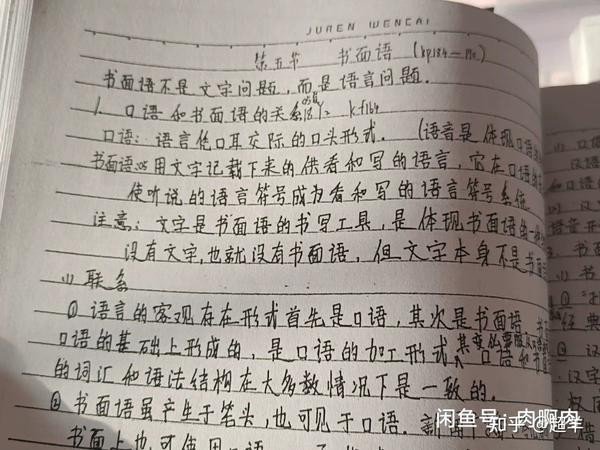 JUREN WENCAI
第五节 书面语
书面语不是文字问题,而是语言问题.
1. 口语和书面语的关系
口语:语言作口耳交际的口头形式. (语音是体现口语
书面语:用文字记载下来的供看和写的语言,它在口语的
使听说的语言符号成为看和写的语言符号系统
注意:文字是书面语的书写工具,是体现书面语的
没有文字,也就没有书面语,但文字本身不是书面
(1) 联系
① 语言的客观存在形式首先是口语,其次是书面语
口语的基础上形成的,是口语的加工形式, 口语和书面语
的词汇和语法结构在大多数情况下是一致的.
② 书面语虽产生于笔头,也可见于口语.
书面上也可使用口语
闲鱼号:肉啊肉
知乎